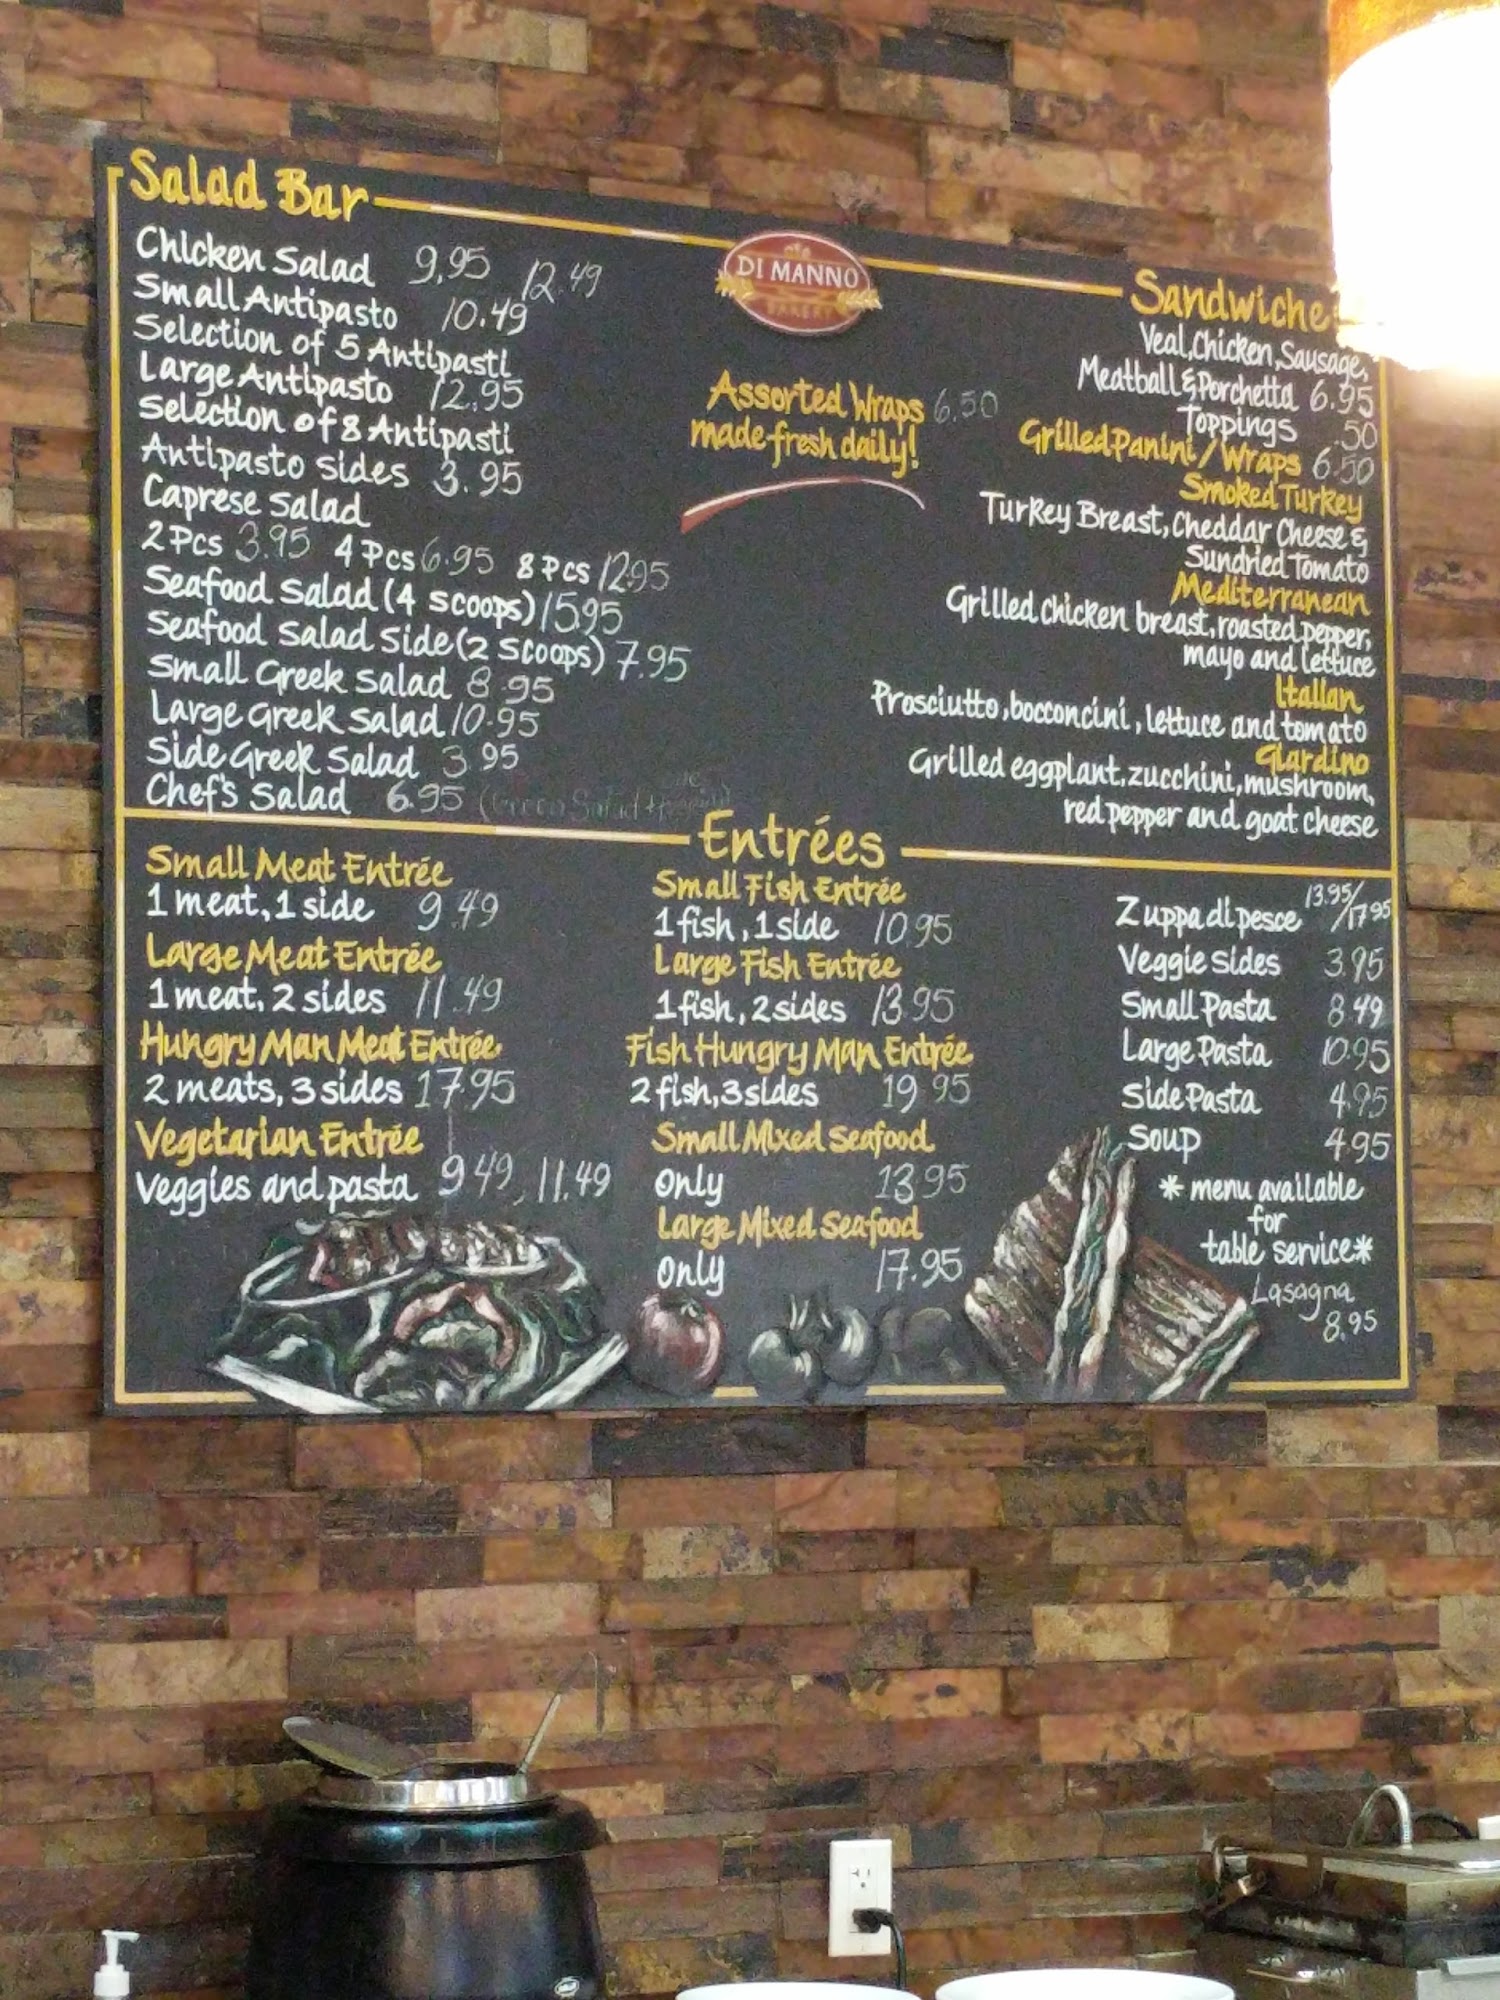 Salad Bar
Chicken Salad 9,95 12.49
Small Antipasto 10.49
Selection of 5 Antipasti
Large Antipasto 12.95
Selection of 8 Antipasti
Antipasto sides 3.95
Caprese Salad
2 Pcs 3.95 4 Pcs 6.95 8 Pcs 12.95
Seafood Salad (4 scoops) 15.95
Seafood Salad Side (2 scoops) 7.95
Small Greek Salad 8.95
Large Greek Salad 10.95
Side Greek Salad 3.95
Chef's Salad 6.95
DI MANNO
BAKERY
Assorted Wraps 6.50
made fresh daily!
Sandwiche
Veal, Chicken, Sausage,
Meatball & Porchetta 6.95
Toppings .50
Grilled Panini / Wraps 6.50
Smoked Turkey
Turkey Breast, Cheddar Cheese &
Sundried Tomato
Mediterranean
Grilled chicken breast, roasted pepper,
mayo and lettuce
Italian
Prosciutto, bocconcini, lettuce and tomato
Giardino
Grilled eggplant, zucchini, mushroom,
red pepper and goat cheese
Entrées
Small Meat Entrée
1 meat, 1 side 9.49
Large Meat Entrée
1 meat, 2 sides 11.49
Hungry Man Meat Entrée
2 meats, 3 sides 17.95
Vegetarian Entrée
Veggies and pasta 9.49, 11.49
Small Fish Entrée
1 fish, 1 side 10.95
Large Fish Entrée
1 fish, 2 sides 13.95
Fish Hungry Man Entrée
2 fish, 3 sides 19.95
Small Mixed Seafood
Only 13.95
Large Mixed Seafood
Only 17.95
Zuppa di pesce 13.95/17.95
Veggie sides 3.95
Small Pasta 8.49
Large Pasta 10.95
Side Pasta 4.95
Soup 4.95
* menu available
for
table service*
Lasagna
8.95